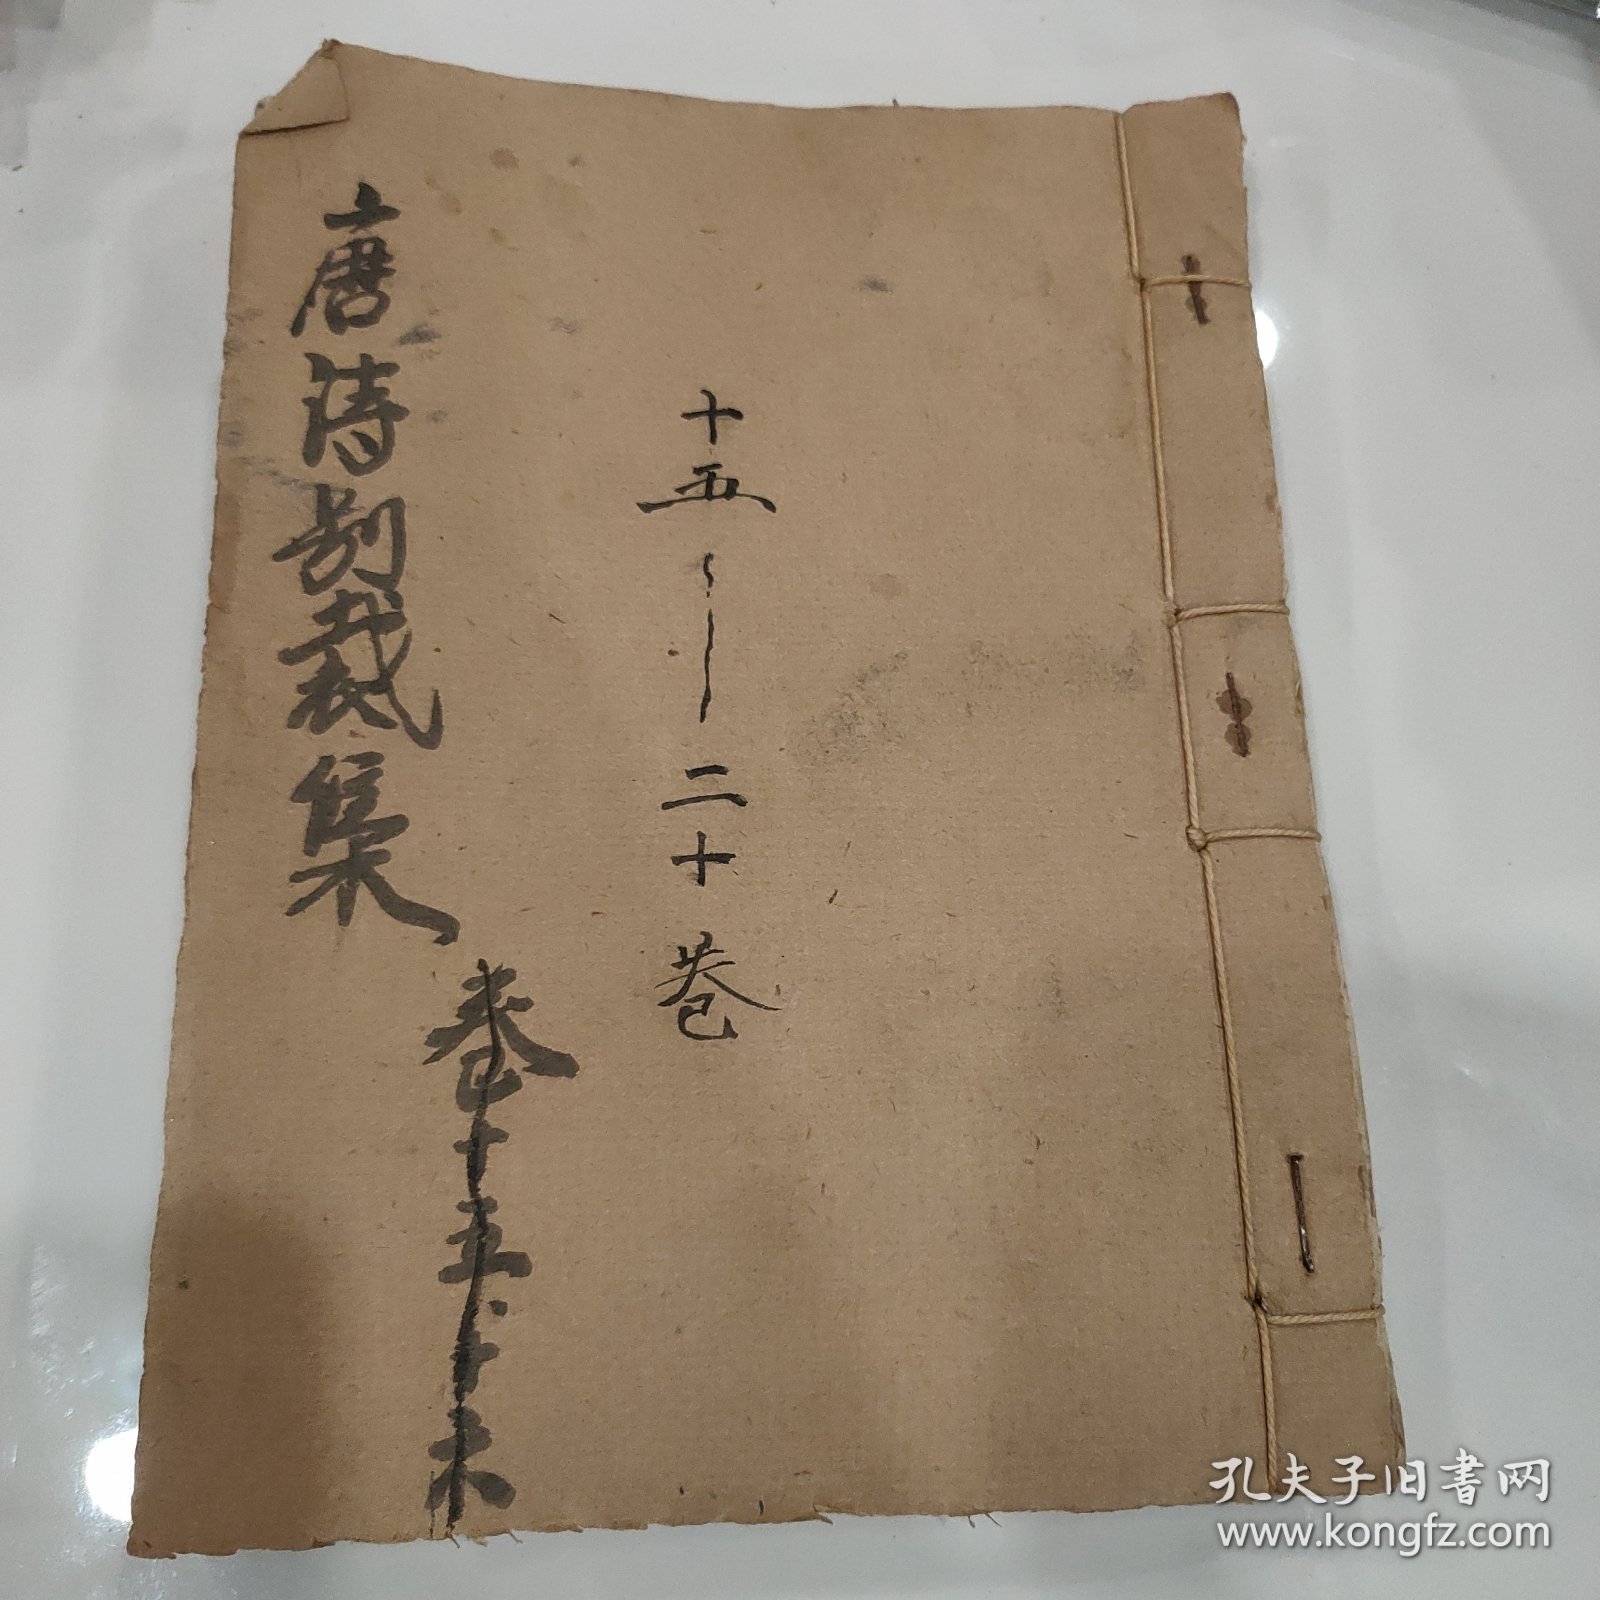 十五～二十卷
唐詩别裁集
卷十五、十未
孔夫子旧书网
www.kongfz.com